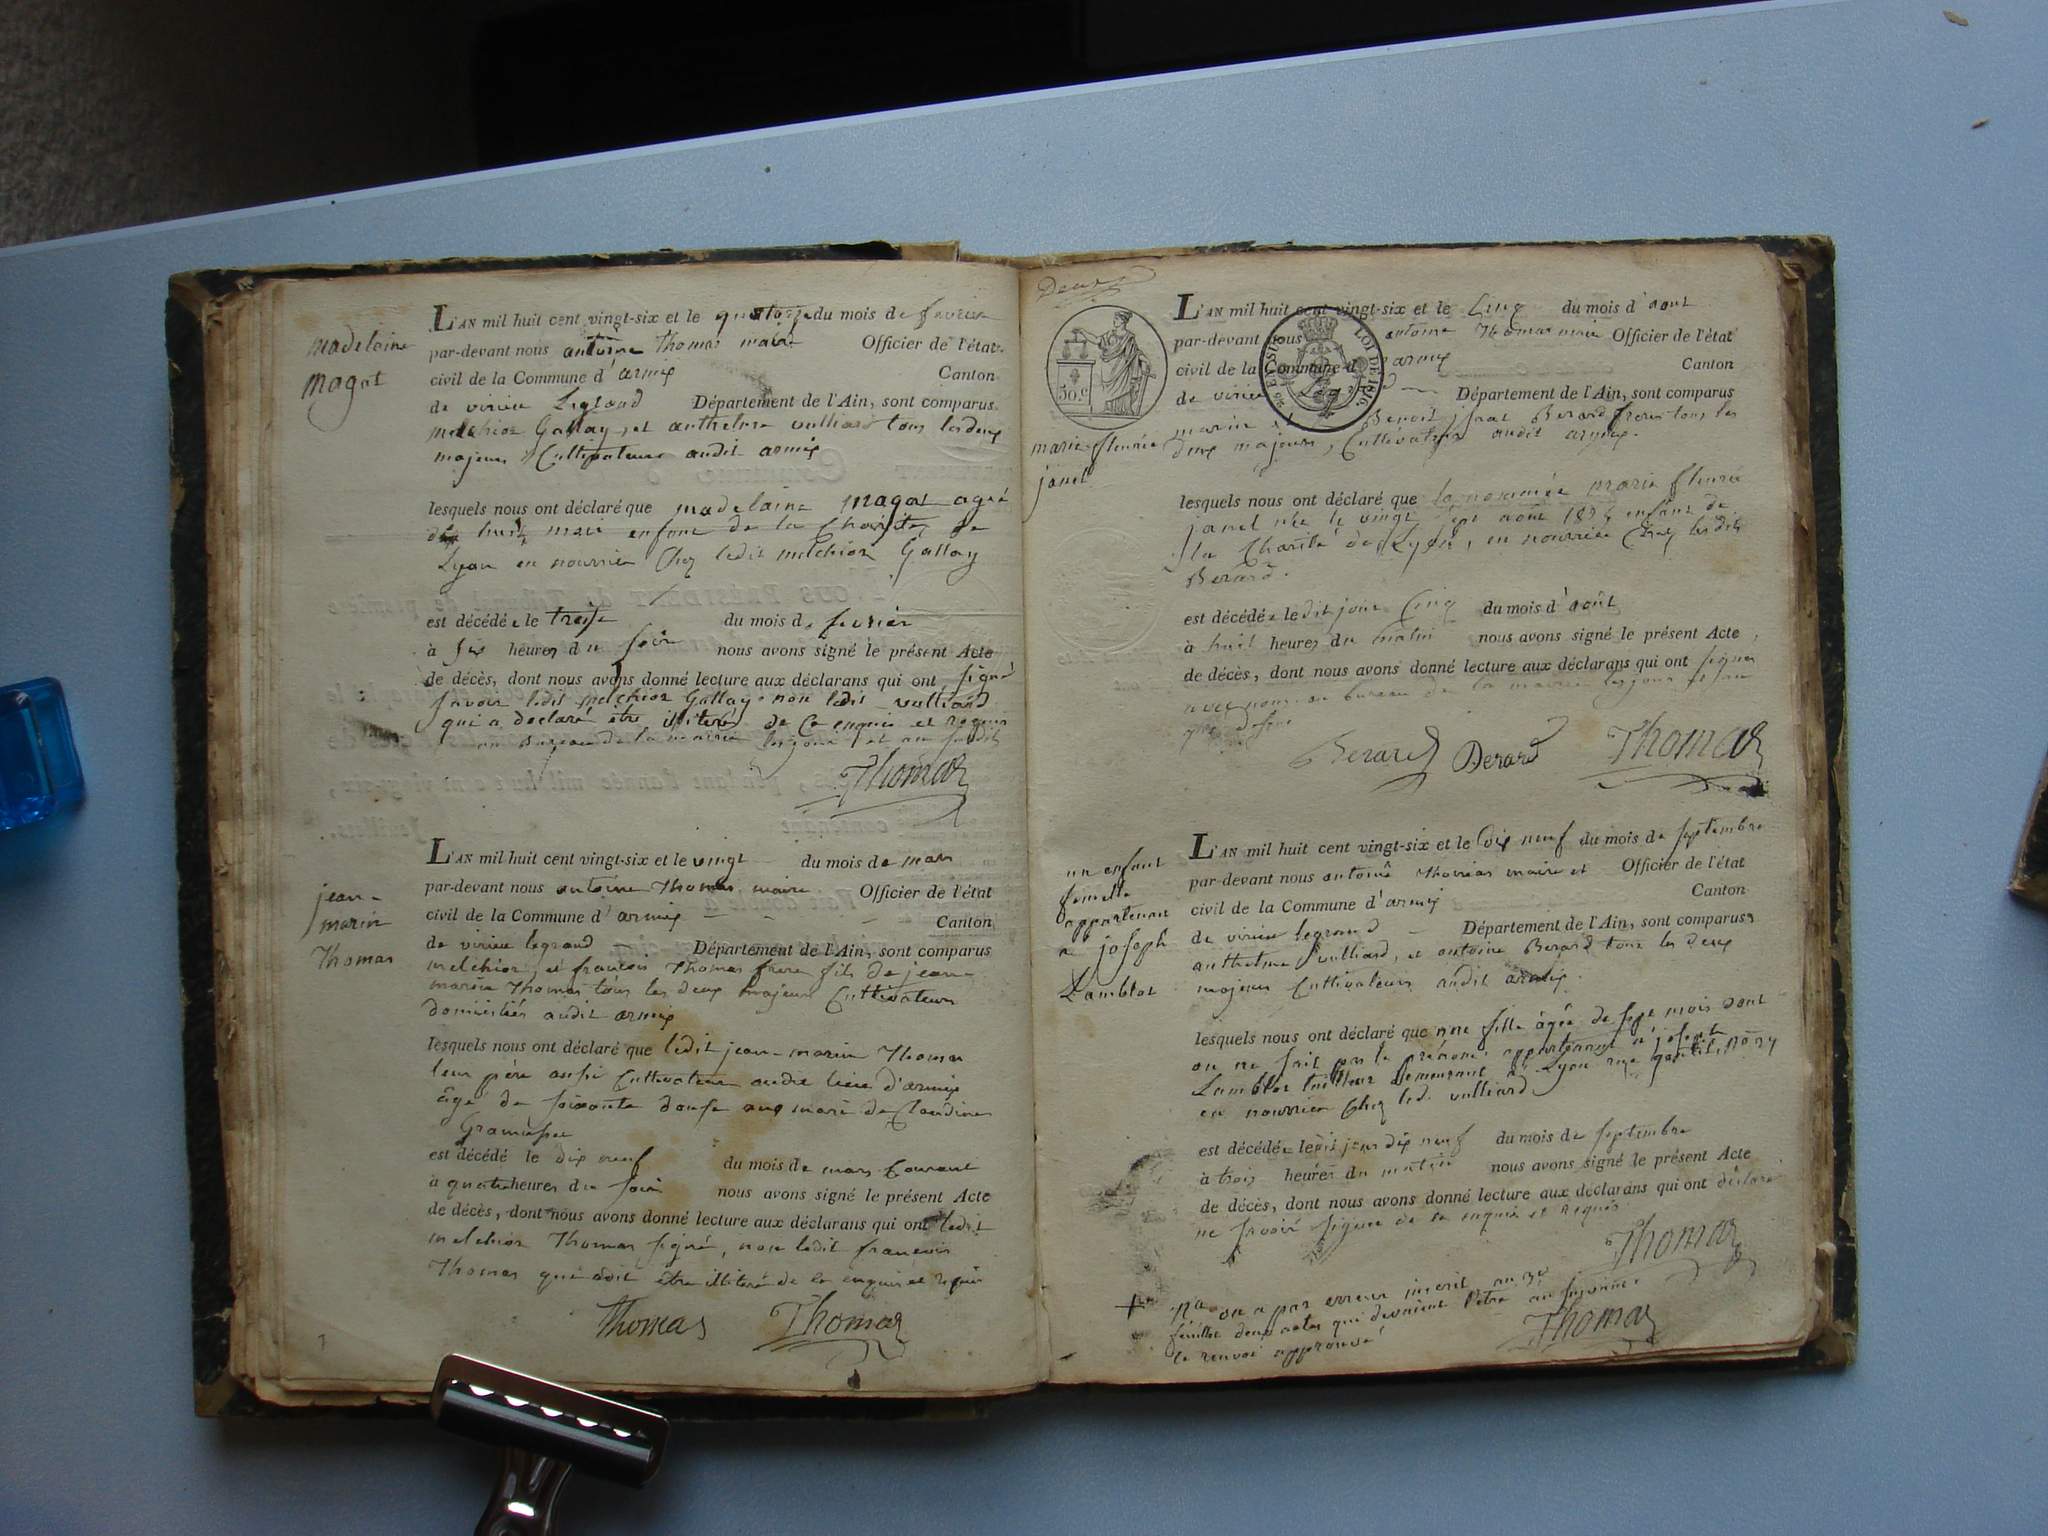 madelaine
magat
L'AN mil huit cent vingt-six et le quatorze du mois de fevrier
par-devant nous antoine Thomas maire Officier de l'état
civil de la Commune d'armix Canton
de virieu Legrand Département de l'Ain, sont comparus
melchior Gallay, et anthelme vulliard tous les deux
majeurs Cultivateurs audit armix
lesquels nous ont déclaré que madelaine magat agée
de huit mois enfant de la Charité de
Lyon en nourrice Chez ledit melchior Gallay
est décédée le treise du mois de fevrier
à six heures du soir nous avons signé le présent Acte
de décès, dont nous avons donné lecture aux déclarans qui ont signé
savoir ledit melchior Gallay non ledit vulliard
qui a declaré être illiteré de ce enquis et requis
au Bureau de la mairie les jour et an susdits
Thomas
jean-
marin
Thomas
L'AN mil huit cent vingt-six et le vingt du mois de mars
par-devant nous antoine Thomas maire Officier de l'état
civil de la Commune d'armix Canton
de virieu legrand Département de l'Ain, sont comparus
melchior, et françois Thomas frere fils de jean-
marin Thomas tous les deux majeurs Cultivateurs
domiciliés audit armix
lesquels nous ont déclaré que ledit jean-marin Thomas
leur père aussi Cultivateur audit lieu d'armix
âgé de soixante douse ans mari de Claudine
est décédé le dix neuf du mois de mars Courant
à quatre heures du soir nous avons signé le présent Acte
de décès, dont nous avons donné lecture aux déclarans qui ont ledit
melchior Thomas signé, non ledit françois
Thomas qui a dit être illiteré de ce enquis et requis
Thomas Thomas
Deux
50.c
LOI DE 1816.
marie fleurie
janel
L'AN mil huit cent vingt-six et le Cinq du mois d'aout
par-devant nous antoine Thomas maire Officier de l'état
civil de la Commune d'armix Canton
de virieu Département de l'Ain, sont comparus
marin et Benoit Berard freres tous les
deux majeurs, Cultivateurs audit armix.
lesquels nous ont déclaré que la nommée marie fleurie
janel née le vingt sept août enfant de
la Charité de Lyon, en nourrice Chez lesdits
Berard.
est décédée ledit jour Cinq du mois d'août
à huit heures du matin nous avons signé le présent Acte
de décès, dont nous avons donné lecture aux déclarans qui ont signer
avec nous au bureau de la mairie les jour et an
que dessus
Berard Berard Thomas
un enfant
femelle
appartenant
a joseph
Lamblot
L'AN mil huit cent vingt-six et le dix neuf du mois de septembre
par-devant nous antoine Thomas maire et Officier de l'état
civil de la Commune d'armix Canton
de virieu legrand Département de l'Ain, sont comparus
anthelme vulliard, et antoine Berard tous les deux
majeurs Cultivateurs audit armix.
lesquels nous ont déclaré que une fille âgée de sept mois dont
on ne sait pas le prénom appartenant à joseph
Lamblot tailleur demeurant à Lyon rue
en nourrice Chez led. vulliard
est décédée ledit jour dix neuf du mois de septembre
à trois heures du matin nous avons signé le présent Acte
de décès, dont nous avons donné lecture aux déclarans qui ont déclaré
ne savoir signer de ce enquis et requis
Thomas
on a par erreur inscrit au
feuillet deux actes qui devaient l'être au
le renvoi approuvé
Thomas